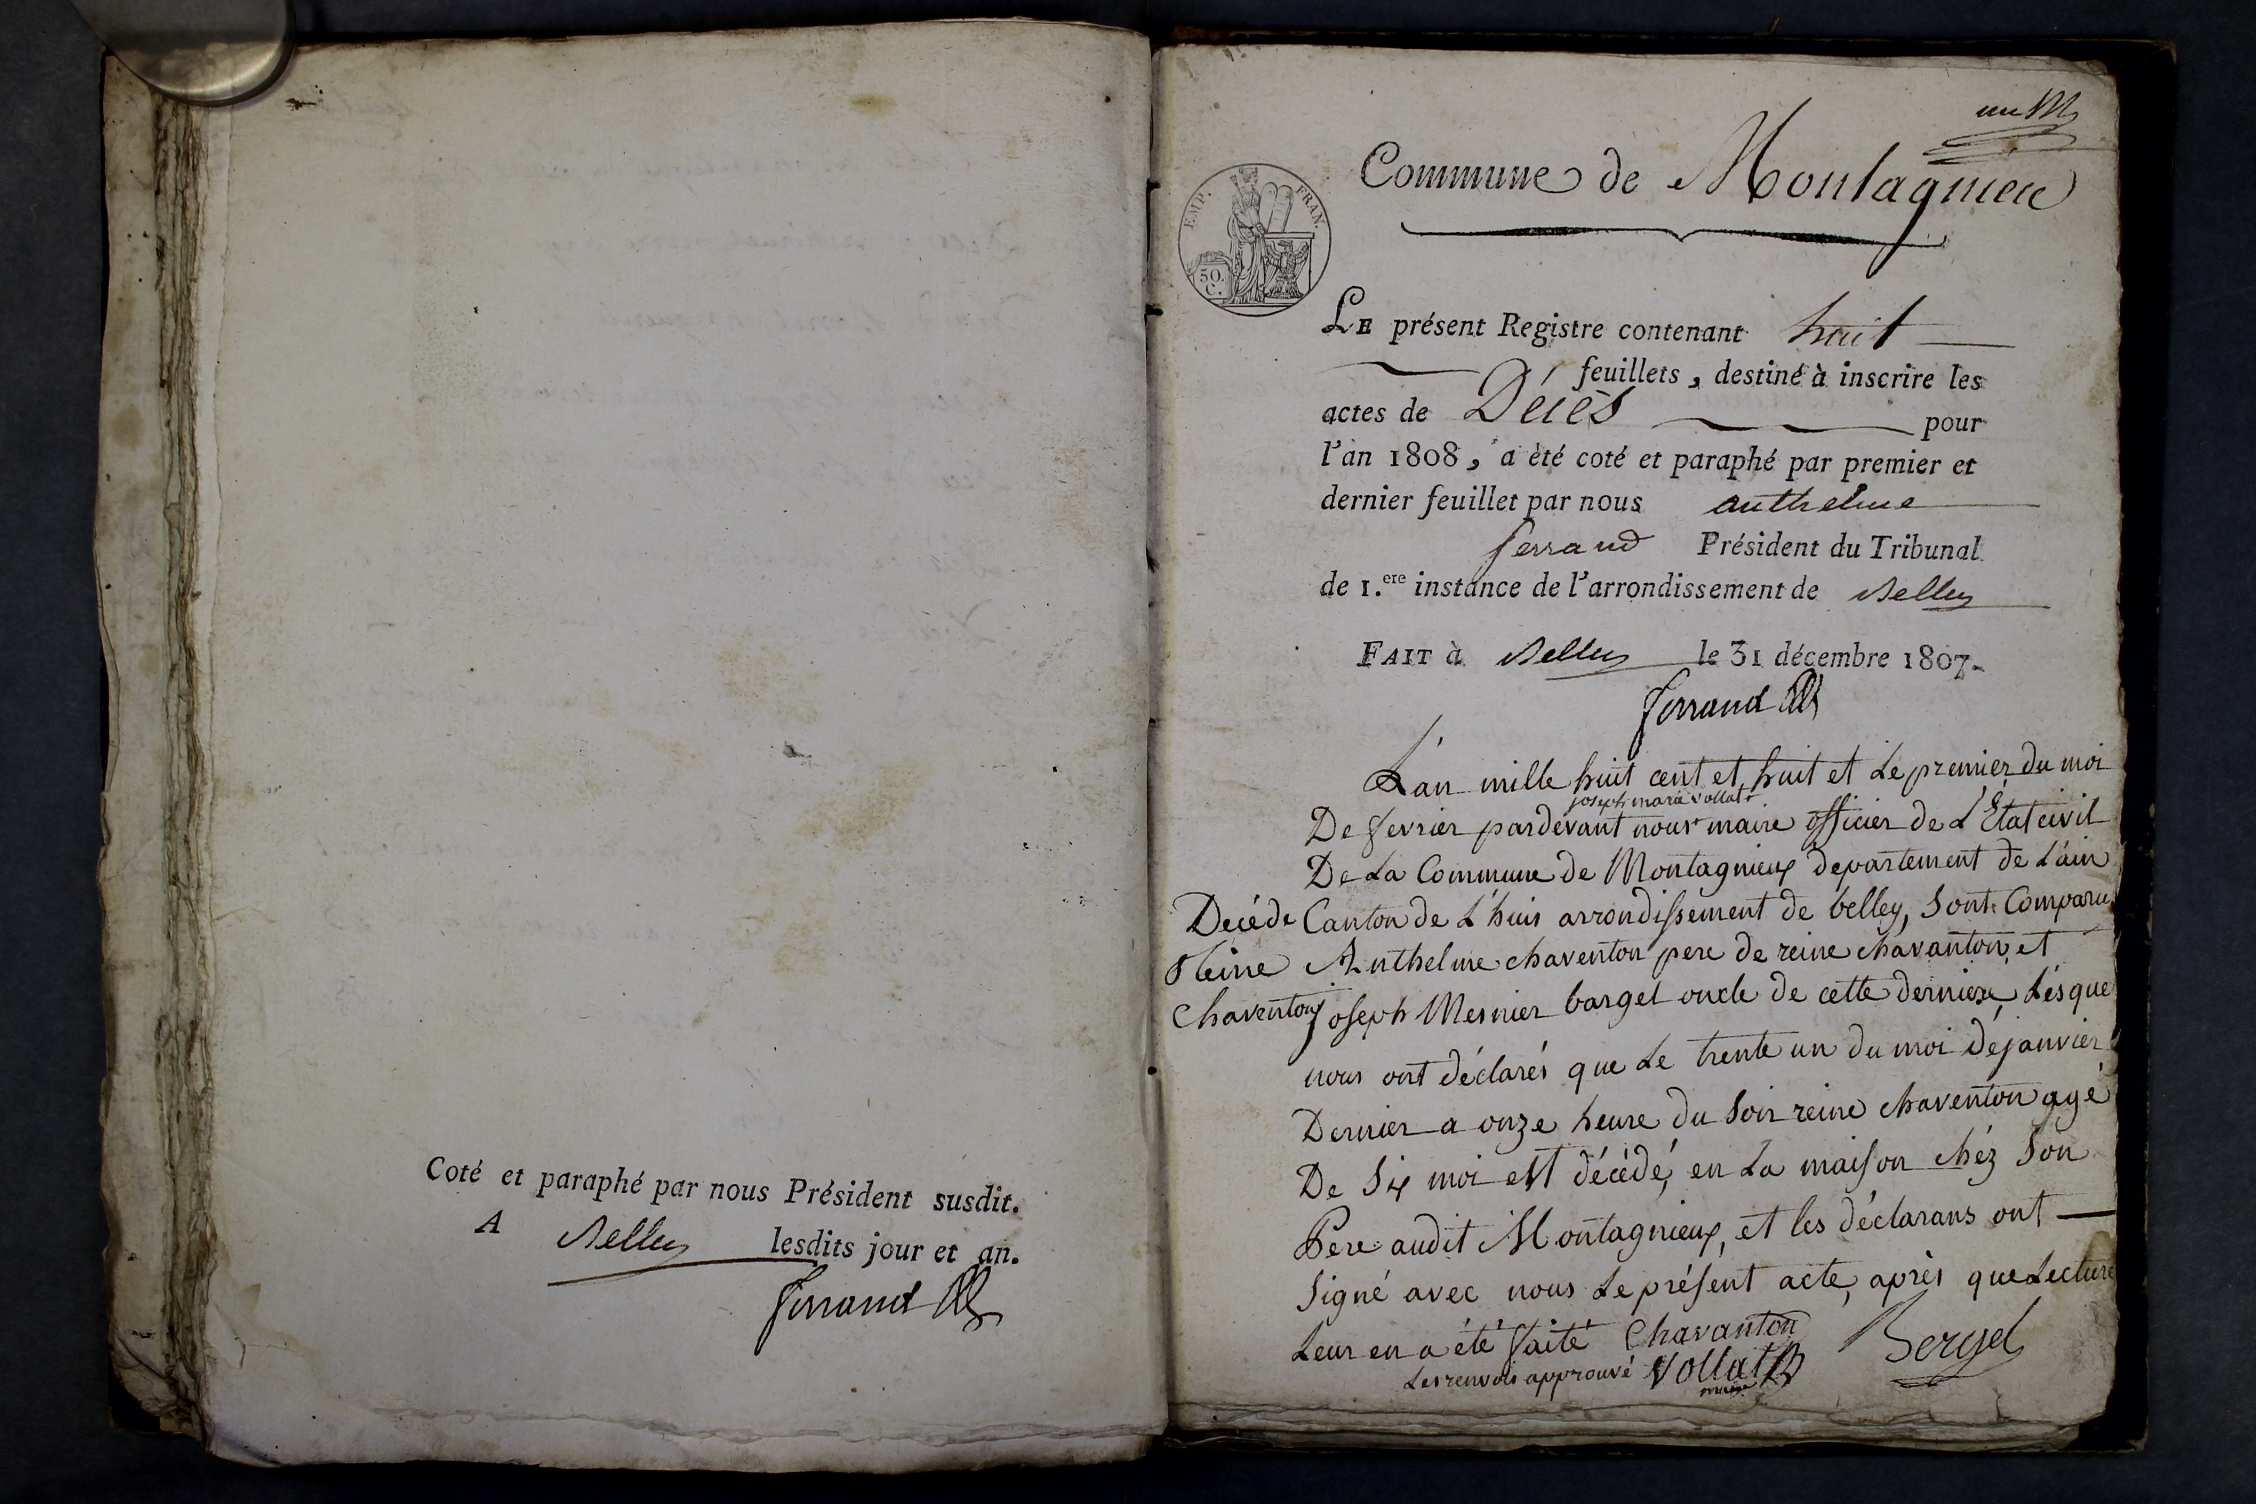 Coté et paraphé par nous Président susdit.
A Belley lesdits jour et an.
Ferrand
un
Commune de Montagnieu
EMP. FRAN.
50.
C.
LE présent Registre contenant huit
feuillets, destiné à inscrire les
actes de Décès pour
l'an 1808, a èté coté et paraphé par premier et
dernier feuillet par nous anthelme
ferrand Président du Tribunal
de 1.ere instance de l'arrondissement de Belley
FAIT à Belley le 31 décembre 1807.
Ferrand
L'an mille huit cent et huit et Le premier du moi
joseph marie vollat
De fevrier pardevant nous maire officier de L'État civil
De La Commune de Montagnieux departement de L'ain
Canton de L'huis arrondissement de belley, Sont Comparu
Anthelme chaventon pere de reine chavanton, et
joseph Mesnier barget oncle de cette derniere, Lésque
nous ont déclarés que Le trente un du moi de janvier
Dernier a onze heure du Soir reine chaventon agé
De Six moi est décédé, en La maison chéz Son
Pere audit Montagnieux, et les déclarans ont
Signé avec nous Le présent acte, après que Lecture
Leur en a été faité Chavanton Bergel
Les renvois approuvé Vollat
maire
Décéde
Reine
Chaventon